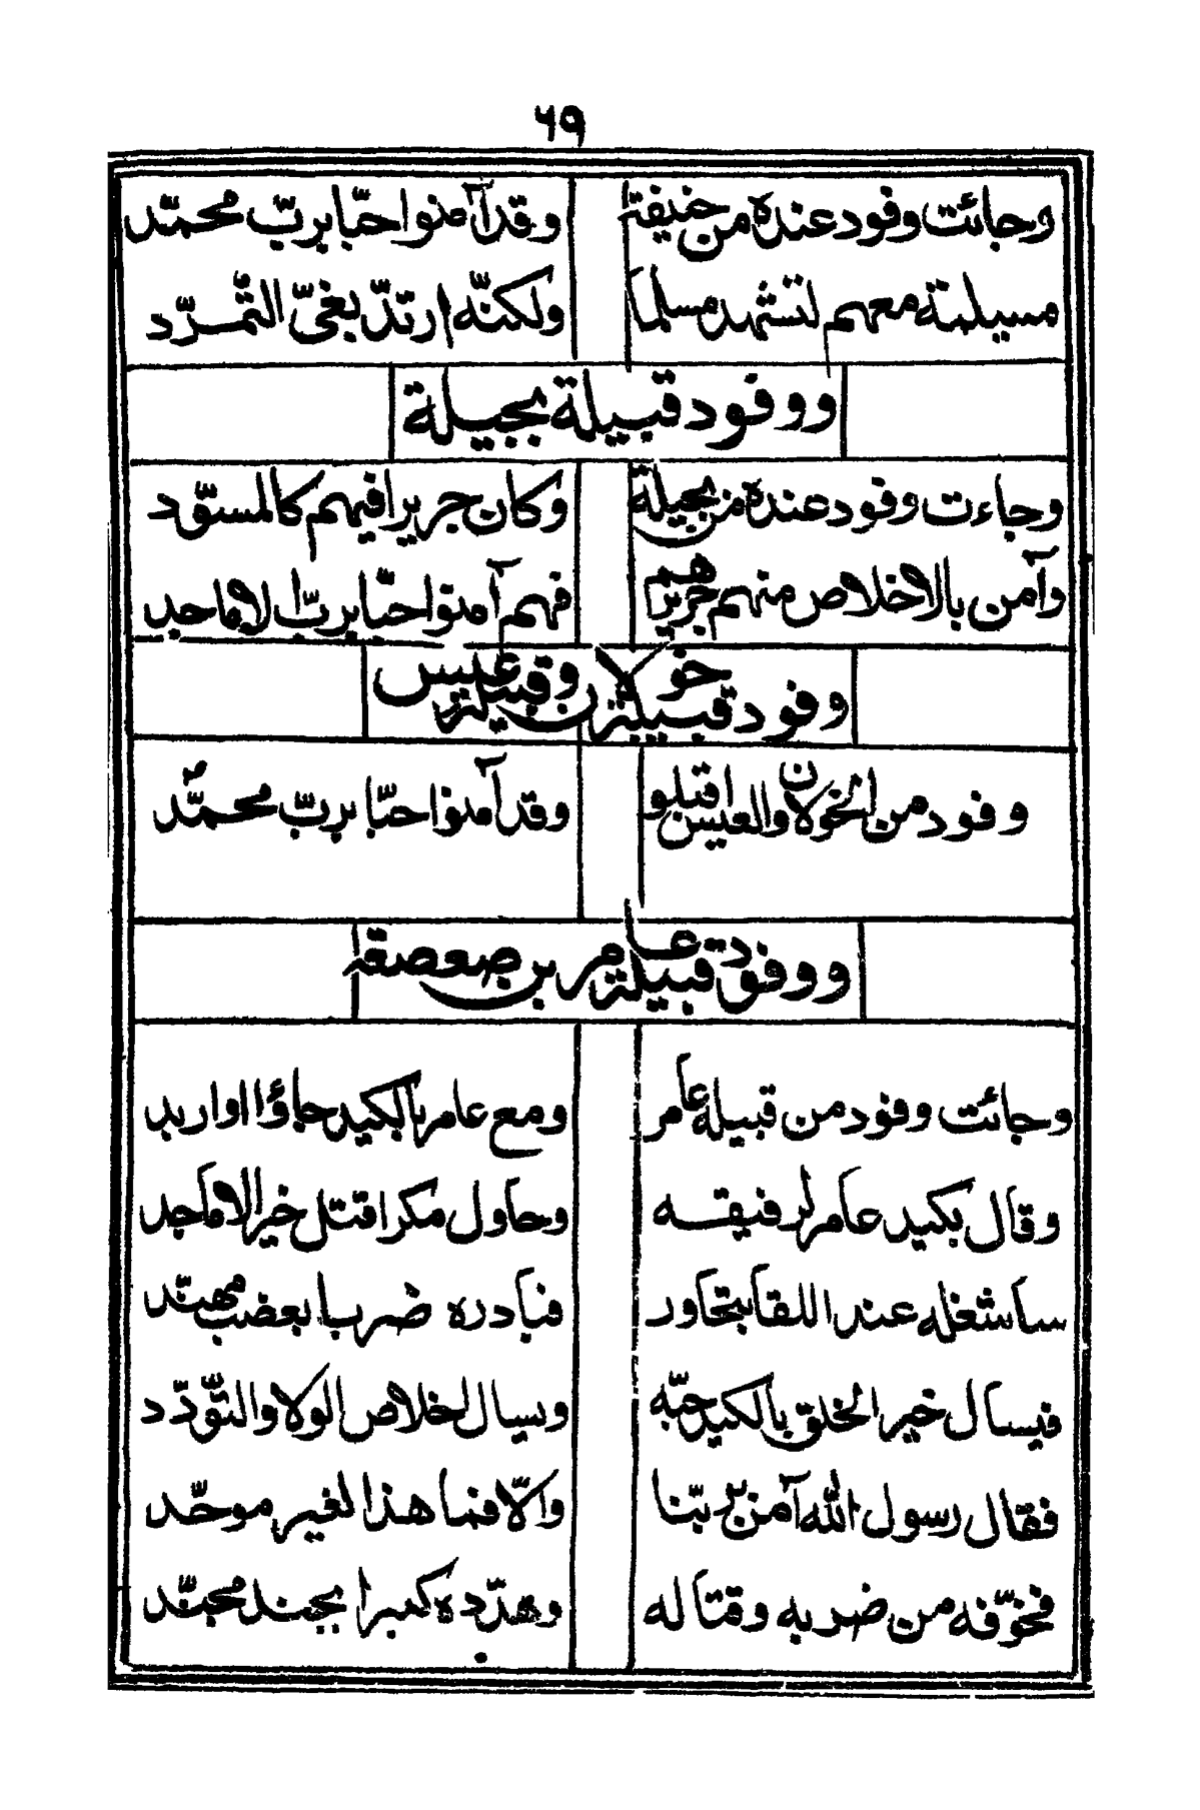 ٦٩
وجائت وفود عنده من حنيفة وقد آمنوا حبّا بربّ محمّد
مسيلمة معهم لتشهد مسلما ولكنّه ارتدّ بغيّ التمّرّد
ووفود قبيلة بجيلة
وجاءت وفود عنده من بجيلة وكان جرير افيهم كالمسوّد
وآمن بالاخلاص منهم جريرهم فهم آمنوا حبّا بربّ الاماجد
وفود قبيلة خولان وقبيلة عبس
وفود من الخولان والعبس اقبلو وقد آمنوا حبّا بربّ محمّد
ووفود قبيلة عامر بن صعصعة
وجائت وفود من قبيلة عامر ومع عامر بالكيد جاؤا اواربد
وقال بكيد عامر لرفيقه وحاول مكرا قتل خير الاماجد
ساشغله عند اللقا بتحاور فبادره ضربا بعضب مهنّد
فيسال خير الخلق بالكيد حبّه ويسال اخلاص الولا والتوّدّد
فقال رسول الله آمن بربّنا والّا فما هذا لغير موحّد
فخوّفه من ضربه وقتاله وهدّده كبرا بجند مجنّد